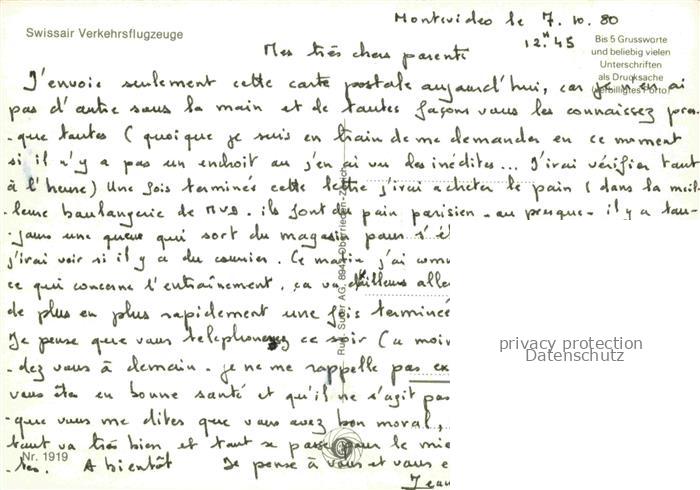 Montevideo le 7.10.80
12.H 45
Swissair Verkehrsflugzeuge
Bis 5 Grussworte
und beliebig vielen
Unterschriften
als Drucksache
(verbilligtes Porto)
Mes très chers parents
J'envoie seulement cette carte postale aujourd'hui, car je n'en ai
pas d'autre sous la main et de toutes façons vous les connaissez pres-
-que toutes (quoique je suis en train de me demander en ce moment
si il n'y a pas un endroit où j'en ai vu des inédites... J'irai vérifier tout
à l'heure) Une fois terminée cette lettre j'irai acheter le pain (dans la meil-
-leure boulangerie de MVD. ils font du pain parisien - ou presque - il y a tou-
-jours une queue qui sort du magasin pour s'ét
j'irai voir si il y a du courrier. Ce matin j'ai comm
ce qui concerne l'entraînement, ça va d'ailleurs alle
de plus en plus rapidement une fois terminé
Je pense que vous telephonerez ce soir (a moin
-dez vous à demain. je ne me rappelle pas ex
vous êtes en bonne santé et qu'il ne s'agit pas
-que vous me dites que vous avez bon moral,
tout va très bien et tout se passe pour le mie
-tes. A bientôt Je pense à vous et vous e
Jean
Nr. 1919
Rud. Suter AG, 8942 Oberrieden-Zürich
privacy protection
Datenschutz